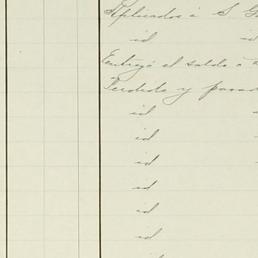 Aplicados á S. G
id id
Entregó el saldo á
Perdida y pasad
id
id
id
id
id
id